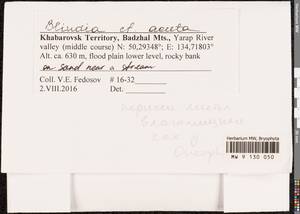 Blindia cf. acuta
Khabarovsk Territory, Badzhal Mts., Yarap River
valley (middle course) N: 50,29348° E: 134,71803°
Alt. ca. 630 m, flood plain lower level, rocky bank
on sand near a stream
Coll. V.E. Fedosov # 16-32
2.VIII.2016 Det.
Herbarium MW, Bryophyta
MW 9 130 050